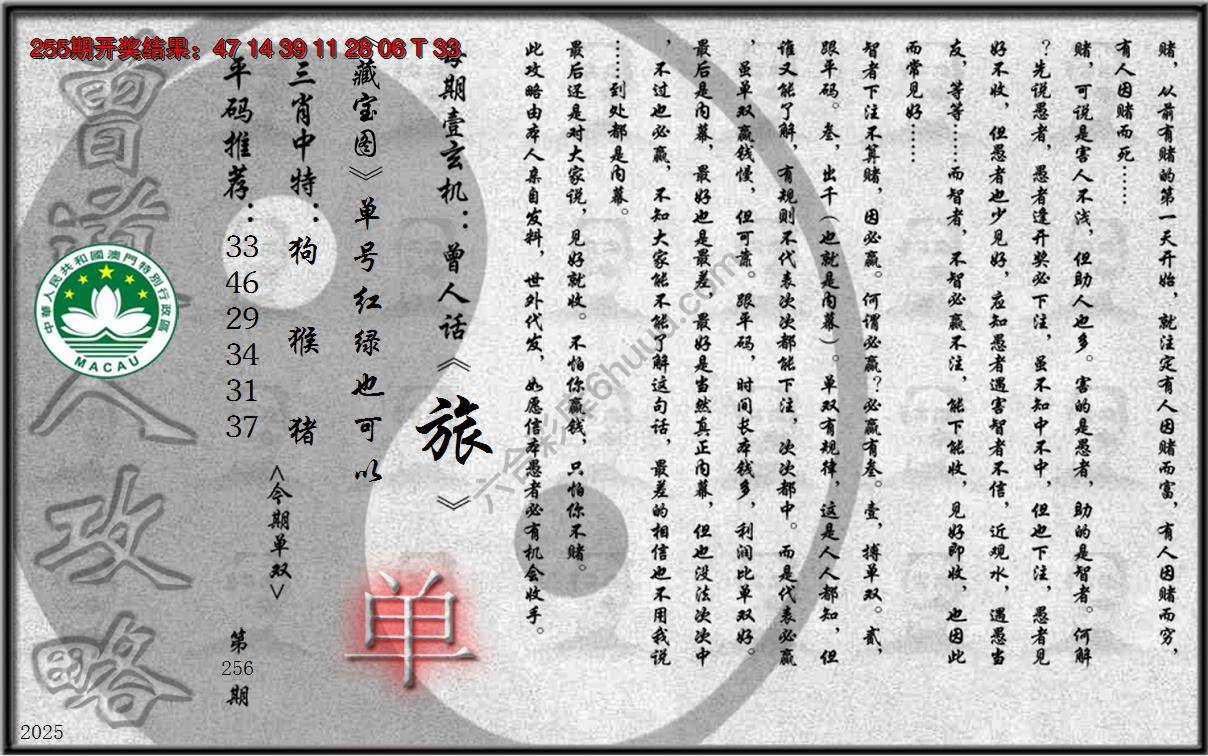 255期开奖结果：47 14 39 11 28 06 T 33
赌，从前有赌的第一天开始，就注定有人因赌而富，有人因赌而穷，
有人因赌而死……
赌，可说是害人不浅，但助人也多。害的是愚者，助的是智者。何解
？先说愚者，愚者逢开奖必下注，虽不知中不中，但也下注，愚者见
好不收，但愚者也少见好，应知愚者遇害智者不信，近观水，遇愚当
友，等等……而智者，不智必赢不注，能下能收，见好即收，也因此
而常见好……
智者下注不算赌，因必赢。何谓必赢？必赢有叁。壹，搏单双。贰，
跟平码。叁，出千（也就是内幕）。单双有规律，这是人人都知，但
谁又能了解，有规则不代表次次都能下注，次次都中。而是代表必赢
，虽单双赢钱慢，但可靠。跟平码，时间长本钱多，利润比单双好。
最后是内幕，最好也是最差，最好是当然真正内幕，但也没法次次中
，不过也必赢，不知大家能不能了解这句话，最差的相信也不用我说
……到处都是内幕。
最后还是对大家说，见好就收。不怕你赢钱，只怕你不赌。
此攻略由本人亲自发料，世外代发，如愿信本愚者必有机会收手。
每期壹玄机：曾人话《旅》
《藏宝图》单号红绿也可以
单
三肖中特：狗 猴 猪
<今期单双>
平码推荐：33 46 29 34 31 37
第256期
曾道人攻略
中華人民共和國澳門特別行政區
MACAU
2025